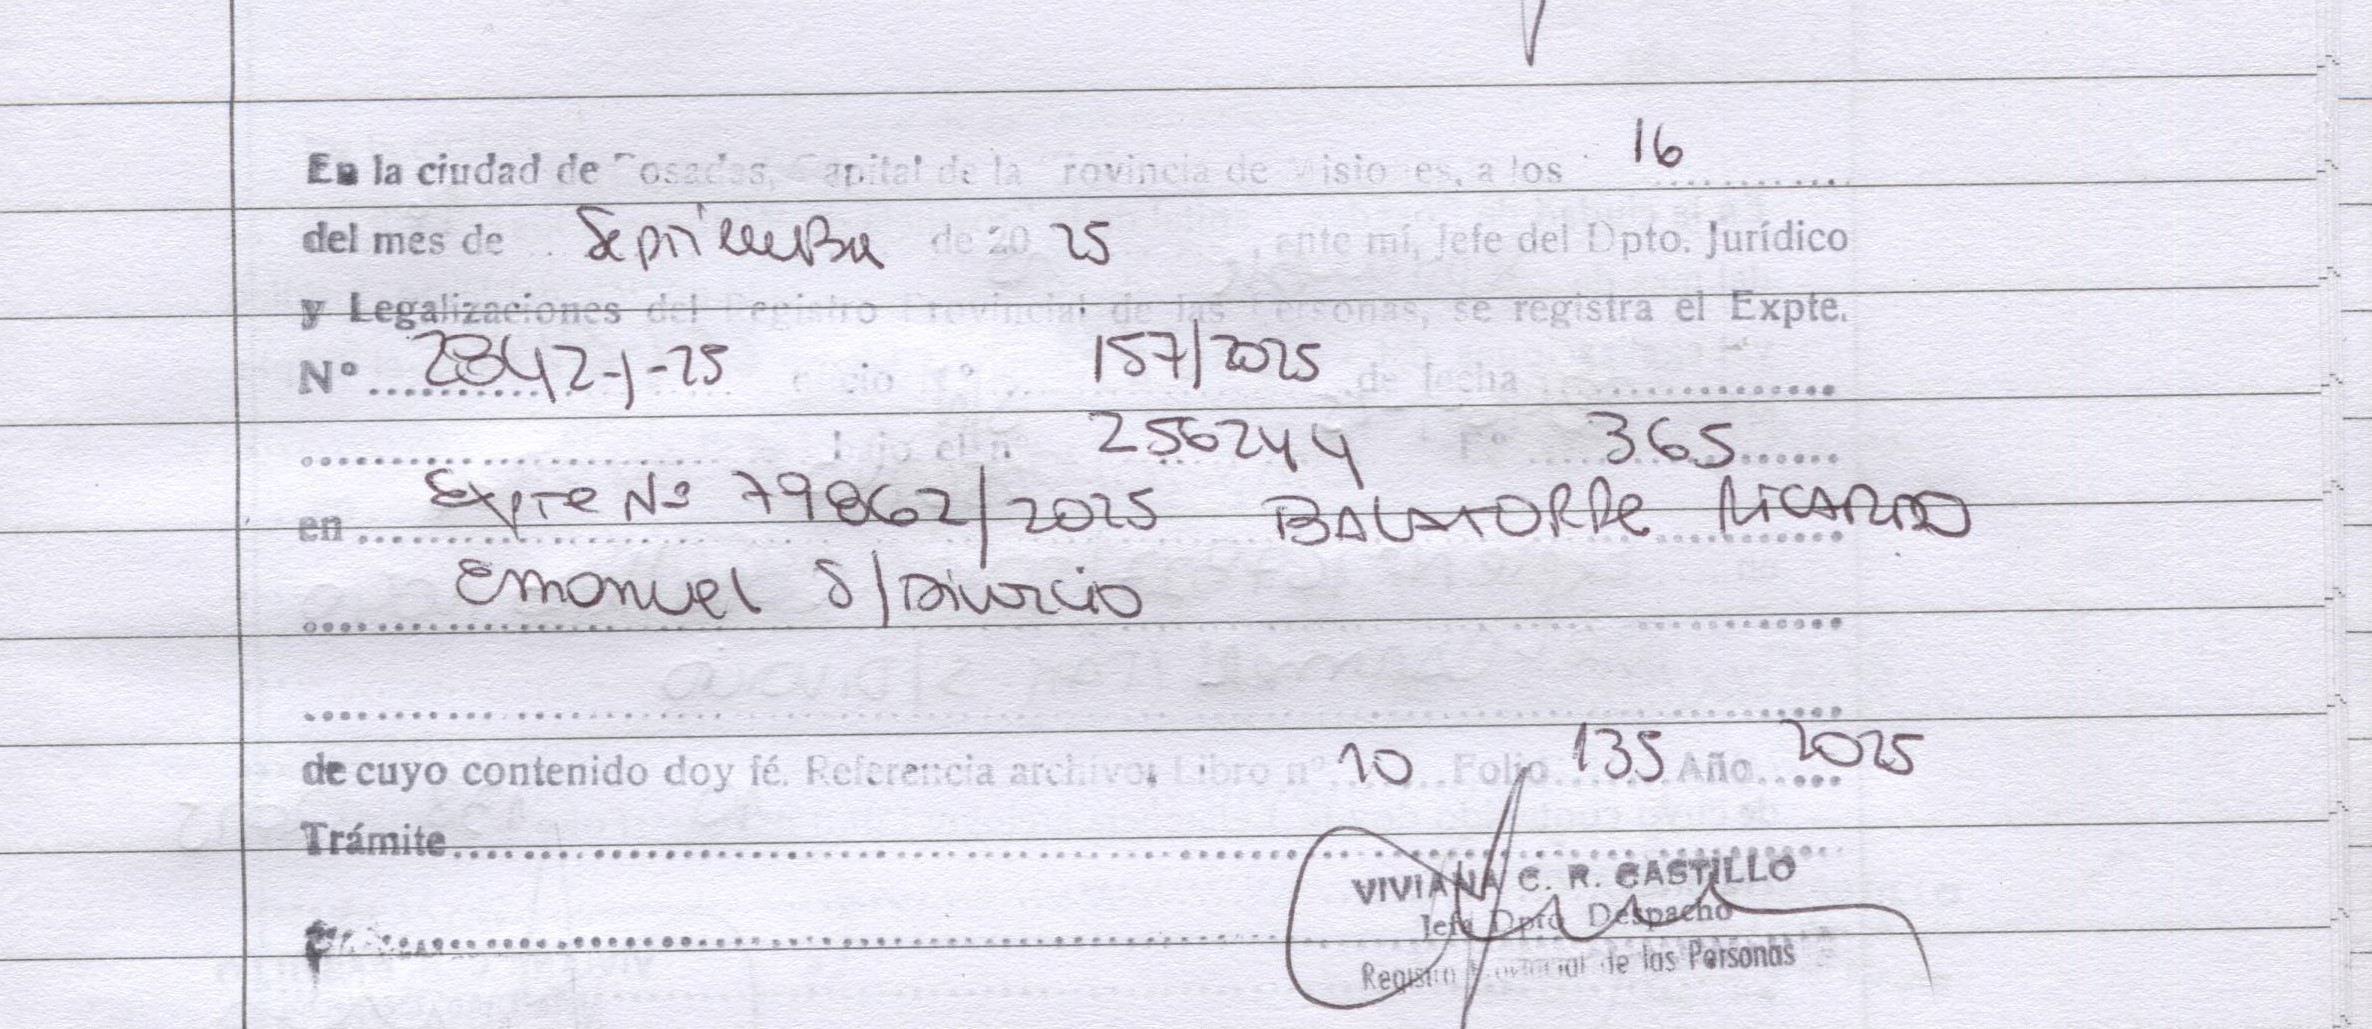 En la ciudad de Posadas, Capital de la Provincia de Misiones, a los 16
del mes de Septiembre de 20 25, ante mí, Jefe del Dpto. Jurídico
y Legalizaciones del Registro Provincial de las Personas, se registra el Expte.
Nº 2842-J-25 oficio nº 157/2025 de fecha
bajo el nº 256244 Fº 365
en Expte Nº 79862/2025 BALATORRE RICARDO
Emanuel S/Divorcio
de cuyo contenido doy fé. Referencia archivo: Libro nº 10 Folio 135 Año 2025
Trámite
VIVIANA C. R. CASTILLO
Jefe Dpto Despacho
Registro Provincial de las Personas